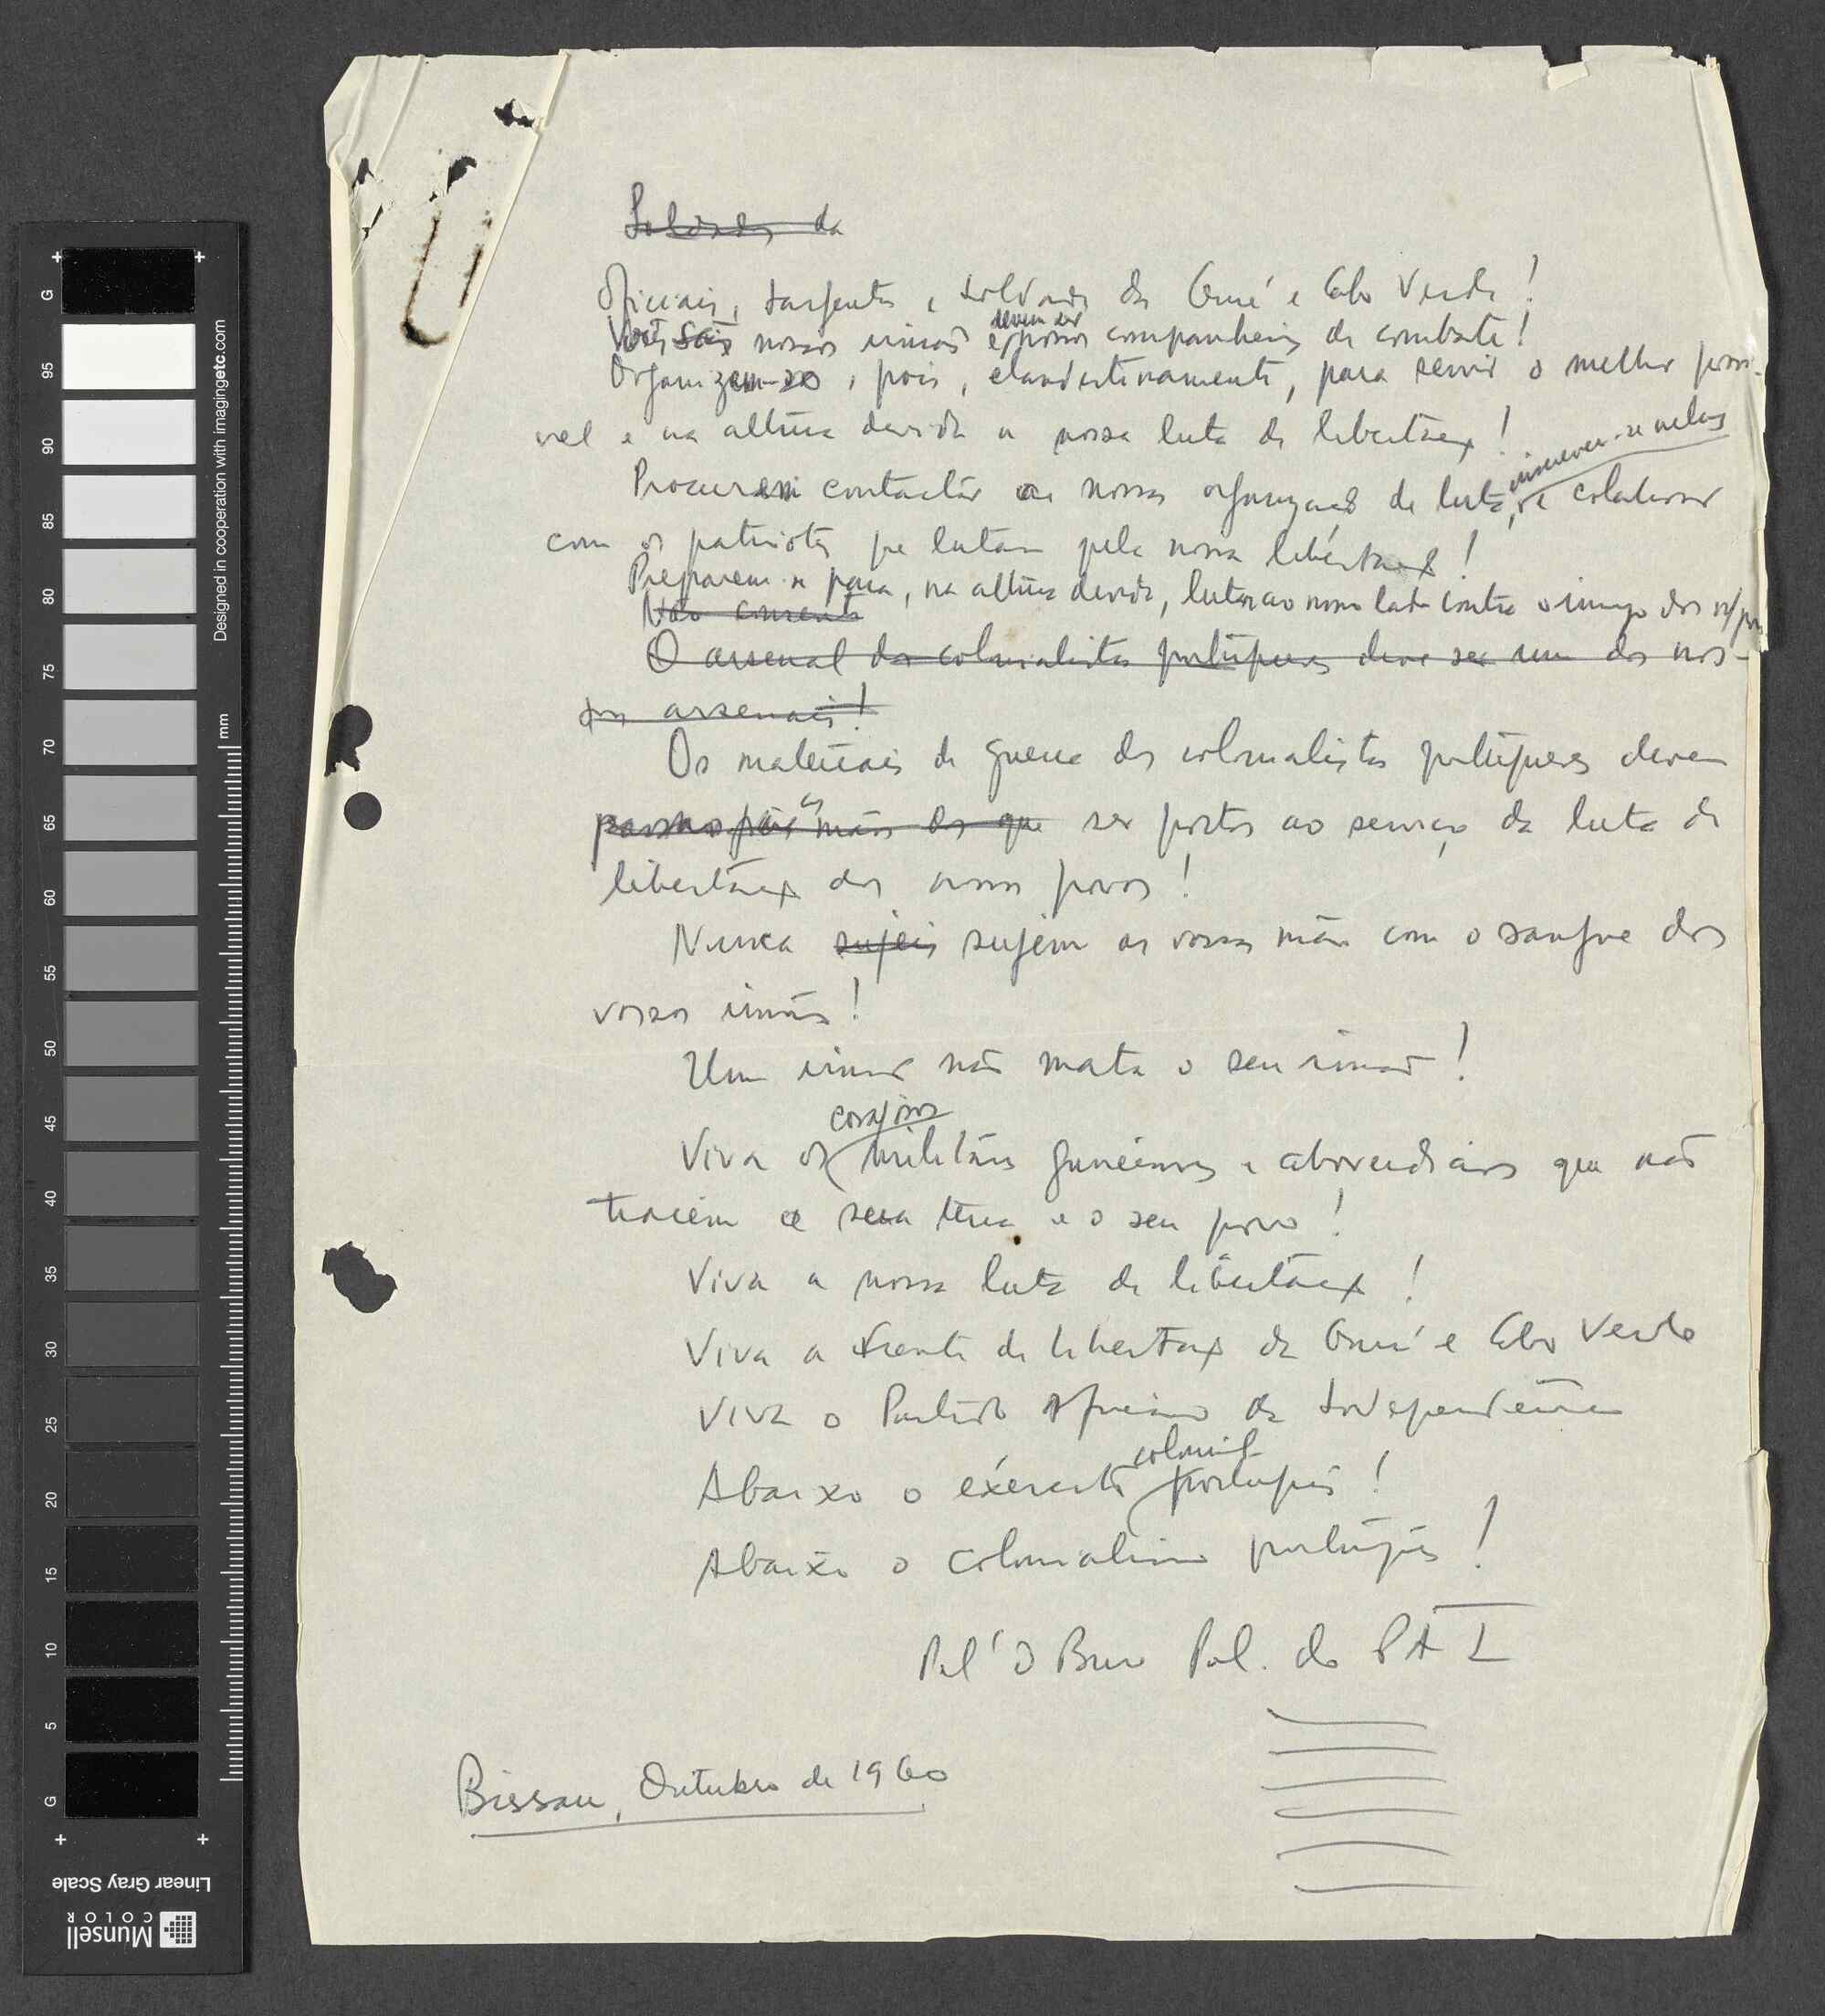 Soldados da
Oficiais, sargentos e soldados da Guiné e Cabo Verde!
Vocês são nossos irmãos e devem ser nossos companheiros de combate!
Organizem-se, pois, clandestinamente, para servir o melhor possí-
vel e na altura devida a nossa luta de libertação!
Procurem contactar as nossas organizações de luta, inscrever-se nelas e colaborar
com os patriotas que lutam pela nossa libertação!
Preparem-se para, na altura devida, lutar ao nosso lado contra o inimigo dos n/ povos
Não consent
O arsenal dos colonialistas portugueses deve ser um dos nos-
sos arsenais!
Os materiais de guerra dos colonialistas portugueses devem
passar para as mãos dos que ser postos ao serviço da luta de
libertação dos nossos povos!
Nunca sujeis sujem as vossas mãos com o sangue dos
vossos irmãos!
Um irmão não mata o seu irmão!
Viva os corajosos militares guineenses e caboverdianos que não
traiem a sua terra e o seu povo!
Viva a nossa luta de libertação!
Viva a Frente de Libertação da Guiné e Cabo Verde
Viva o Partido Africano da Independência
Abaixo o exército colonial português!
Abaixo o colonialismo português!
Pel'O Buro Pol. do PAI
Bissau, Outubro de 1960
G 95 90 85 80 75 70 65 60 55 50 45 40 35 30 25 20 15 10 5 G
Designed in cooperation with imagingetc.com
mm
Linear Gray Scale
Munsell
COLOR